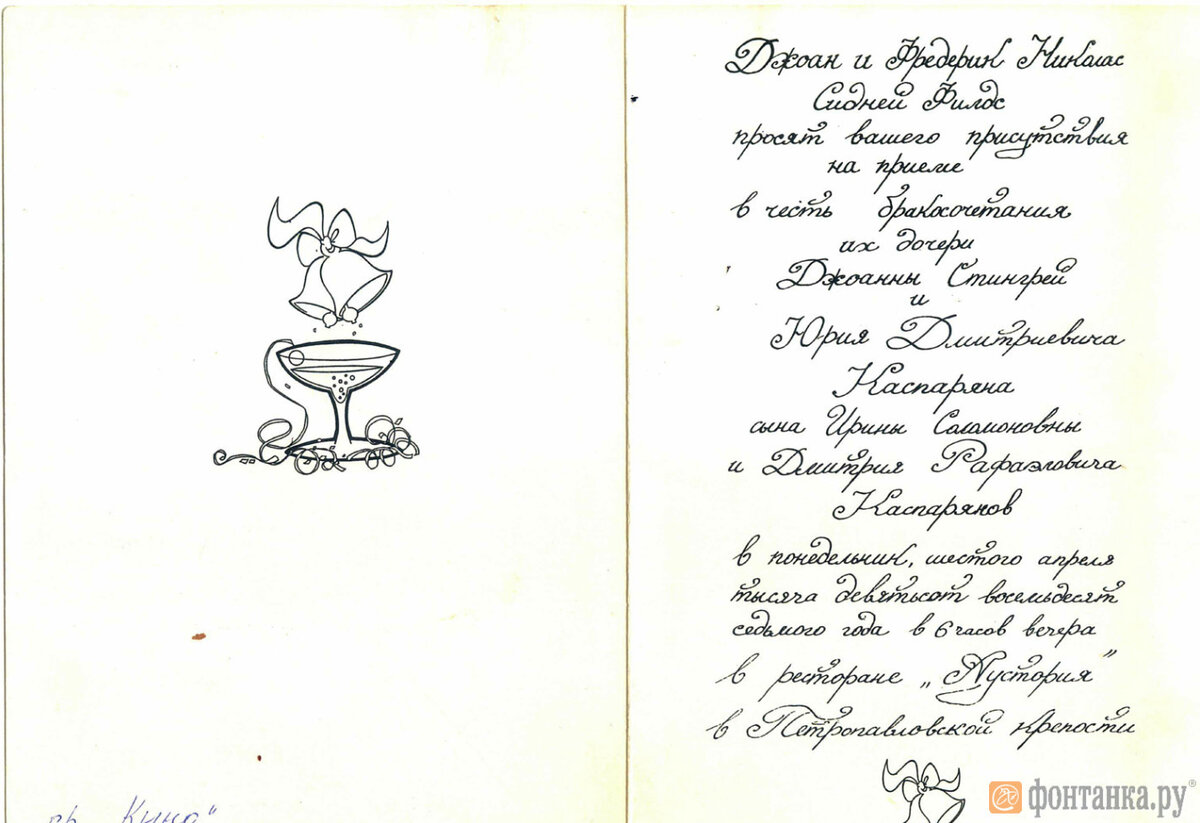 Джоан и Фредерик Николас
Сидней Филдс
просят вашего присутствия
на приеме
в честь бракосочетания
их дочери
Джоанны Стингрей
и
Юрия Дмитриевича
Каспаряна
сына Ирины Соломоновны
и Дмитрия Рафаэловича
Каспарянов
в понедельник, шестого апреля
тысяча девятьсот восемьдесят
седьмого года в 6 часов вечера
в ресторане „Аустерия”
в Петропавловской крепости
гр. „Кино"
фонтанка.ру®